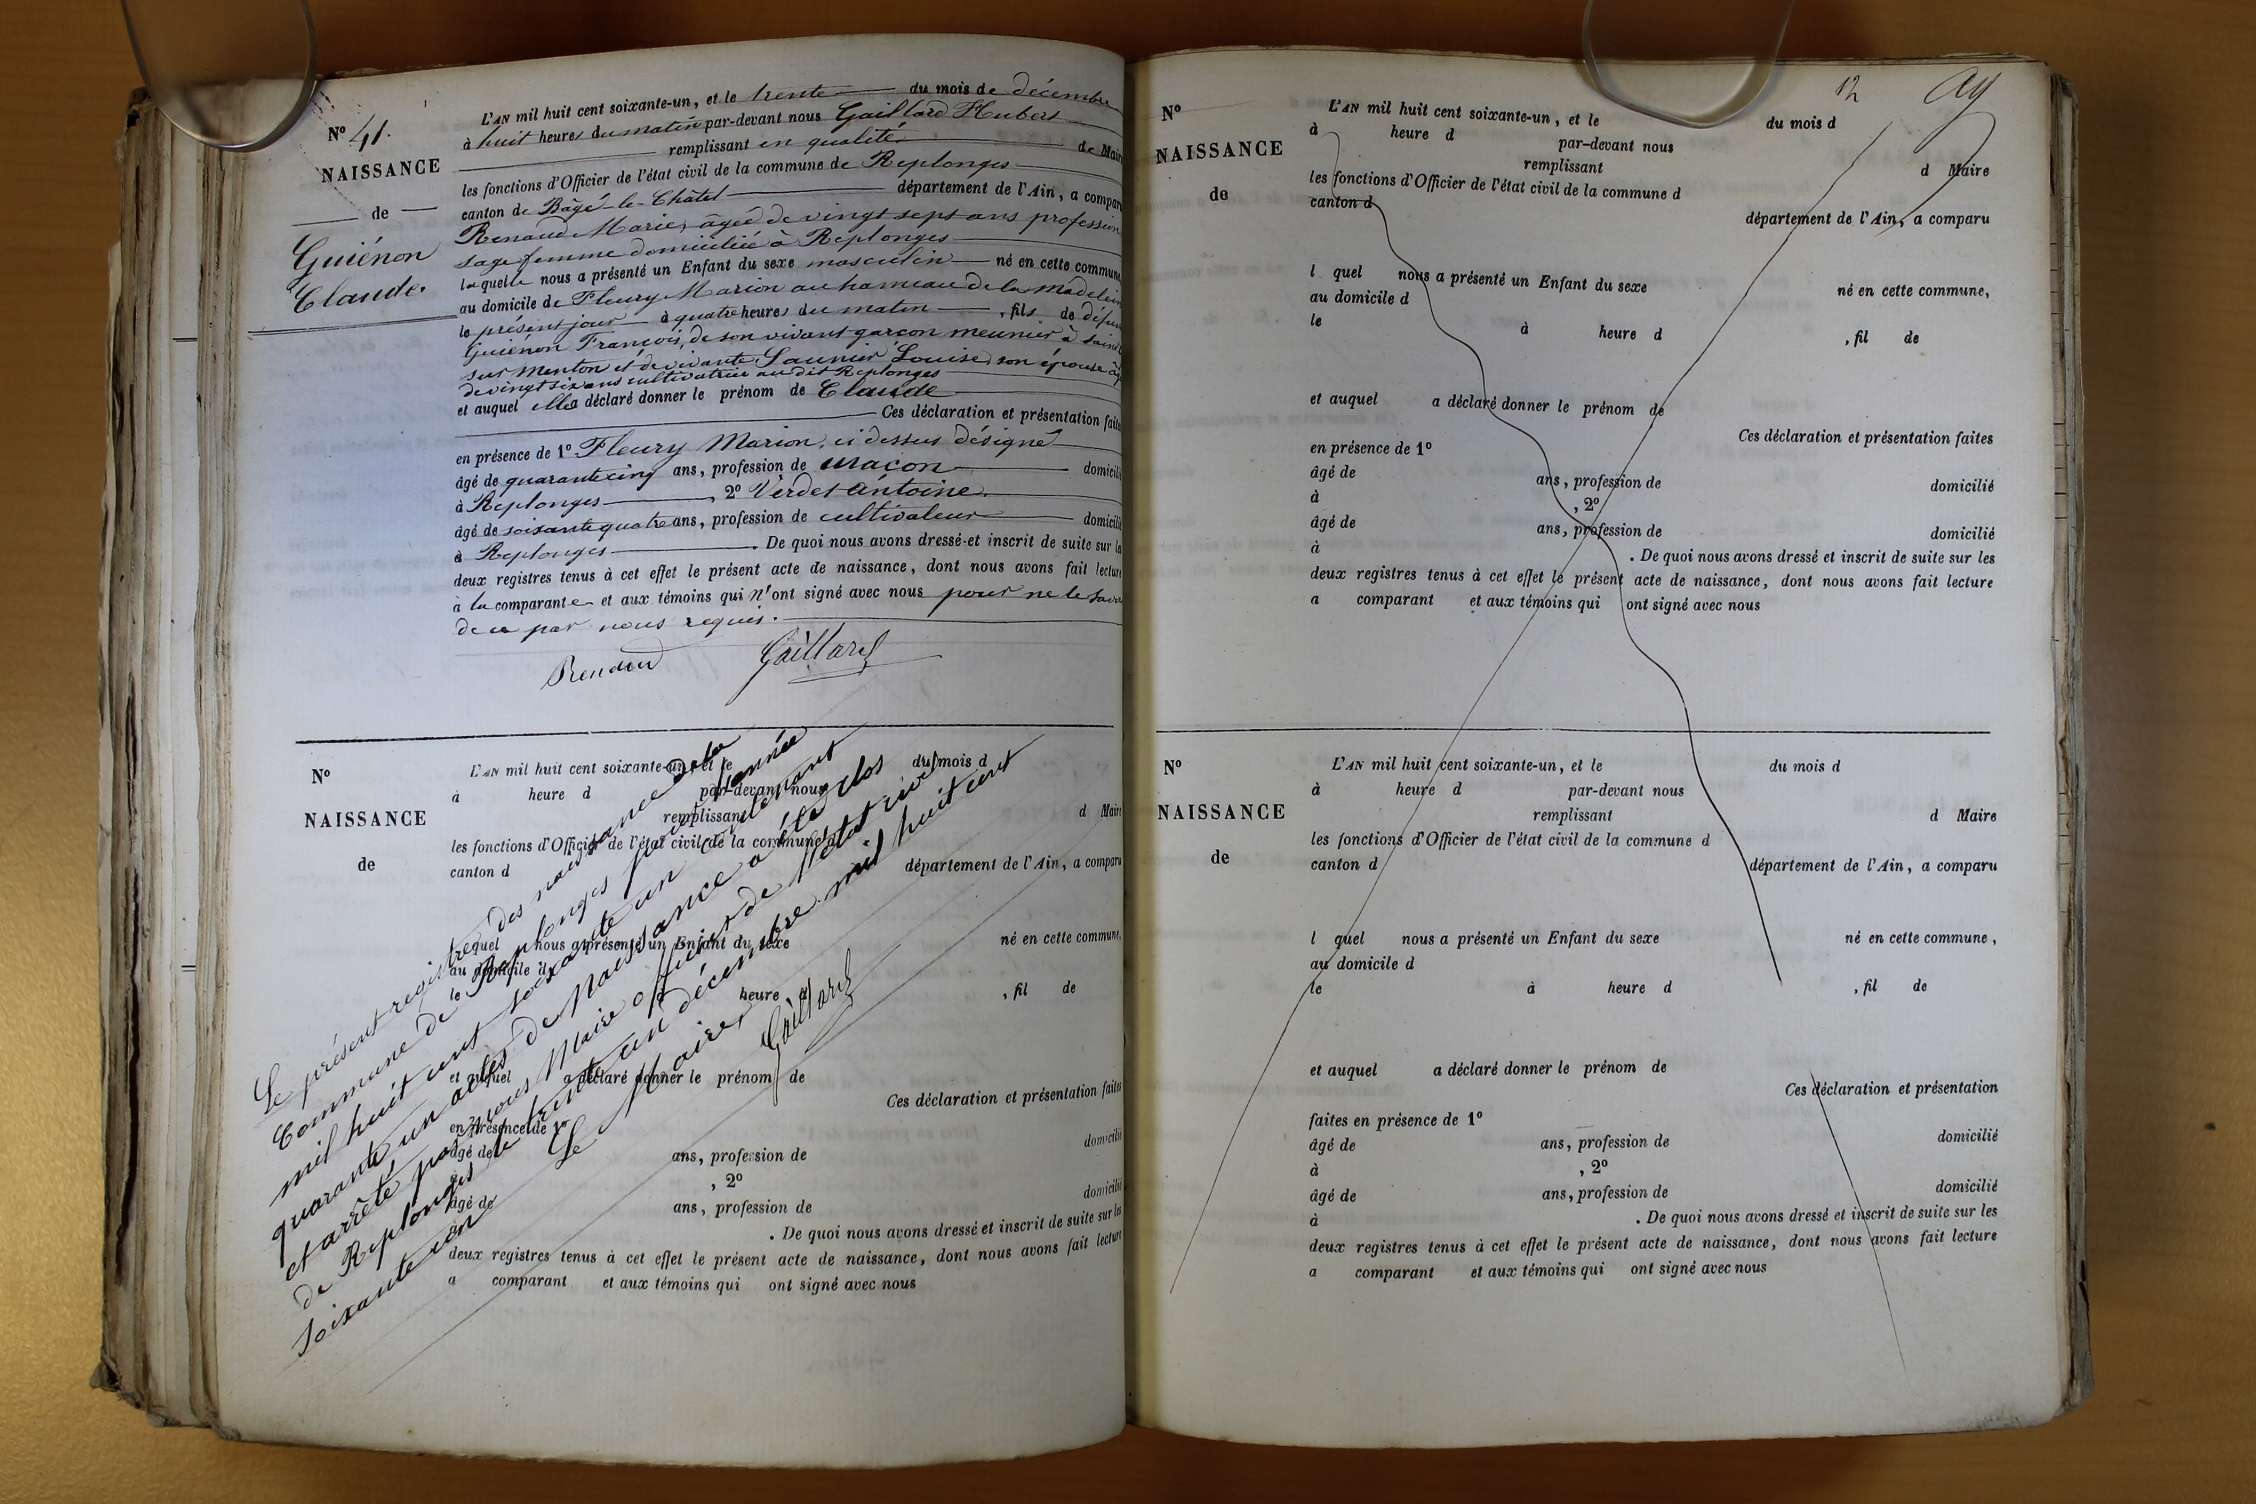 N° 41.
NAISSANCE
de
Guiénon
Claude.
L'AN mil huit cent soixante-un, et le trente du mois de décembre
à huit heures du matin par-devant nous Gaillard Hubert
remplissant en qualité de Maire
les fonctions d'Officier de l'état civil de la commune de Replonges
canton de Bâgé-le-Châtel département de l'Ain, a comparu
Renaud Marie, âgée de vingt sept ans profession
sage femme domiciliée à Replonges
laquelle nous a présenté un Enfant du sexe masculin né en cette commune
au domicile de Fleury Marion au hameau de la Madeleine
le présent jour à quatre heures du matin, fils de défunt
Guiénon François, de son vivant garçon meunier à Saint
sur Menton et de vivante Saunier Louise, son épouse âgée
de vingt six ans cultivatrice au dit Replonges
et auquel elle a déclaré donner le prénom de Claude
Ces déclaration et présentation faites
en présence de 1° Fleury Marion, ci dessus désigné
âgé de quarante cinq ans, profession de maçon domicilié
à Replonges, 2° Verdet Antoine
âgé de soixante quatre ans, profession de cultivateur domicilié
à Replonges. De quoi nous avons dressé et inscrit de suite sur les
deux registres tenus à cet effet le présent acte de naissance, dont nous avons fait lecture
à la comparante et aux témoins qui n'ont signé avec nous pour ne le savoir
de ce par nous requis.
Gaillard
N°
NAISSANCE
de
L'AN mil huit cent soixante-un, et le du mois d
à heure d par-devant nous
remplissant d Maire
les fonctions d'Officier de l'état civil de la commune d
canton d département de l'Ain, a comparu
l quel nous a présenté un Enfant du sexe né en cette commune,
au domicile d
le à heure d, fil de
et auquel a déclaré donner le prénom de
Ces déclaration et présentation faites
en présence de 1°
âgé de ans, profession de domicilié
à, 2°
âgé de ans, profession de domicilié
à. De quoi nous avons dressé et inscrit de suite sur les
deux registres tenus à cet effet le présent acte de naissance, dont nous avons fait lecture
a comparant et aux témoins qui ont signé avec nous
Le présent registre des naissances de la
Commune de Replonges pour l'année
mil huit cent soixante un contenant
quarante un actes de Naissance a été clos
et arrêté par nous Maire officier de l'état civil
de Replonges le trente un décembre mil huit cent
soixante un
Le Maire,
Gaillard
12
N°
NAISSANCE
de
L'AN mil huit cent soixante-un, et le du mois d
à heure d par-devant nous
remplissant d Maire
les fonctions d'Officier de l'état civil de la commune d
canton d département de l'Ain, a comparu
l quel nous a présenté un Enfant du sexe né en cette commune,
au domicile d
le à heure d, fil de
et auquel a déclaré donner le prénom de
Ces déclaration et présentation faites
en présence de 1°
âgé de ans, profession de domicilié
à, 2°
âgé de ans, profession de domicilié
à. De quoi nous avons dressé et inscrit de suite sur les
deux registres tenus à cet effet le présent acte de naissance, dont nous avons fait lecture
a comparant et aux témoins qui ont signé avec nous
N°
NAISSANCE
de
L'AN mil huit cent soixante-un, et le du mois d
à heure d par-devant nous
remplissant d Maire
les fonctions d'Officier de l'état civil de la commune d
canton d département de l'Ain, a comparu
l quel nous a présenté un Enfant du sexe né en cette commune,
au domicile d
le à heure d, fil de
et auquel a déclaré donner le prénom de
Ces déclaration et présentation
faites en présence de 1°
âgé de ans, profession de domicilié
à, 2°
âgé de ans, profession de domicilié
à. De quoi nous avons dressé et inscrit de suite sur les
deux registres tenus à cet effet le présent acte de naissance, dont nous avons fait lecture
a comparant et aux témoins qui ont signé avec nous